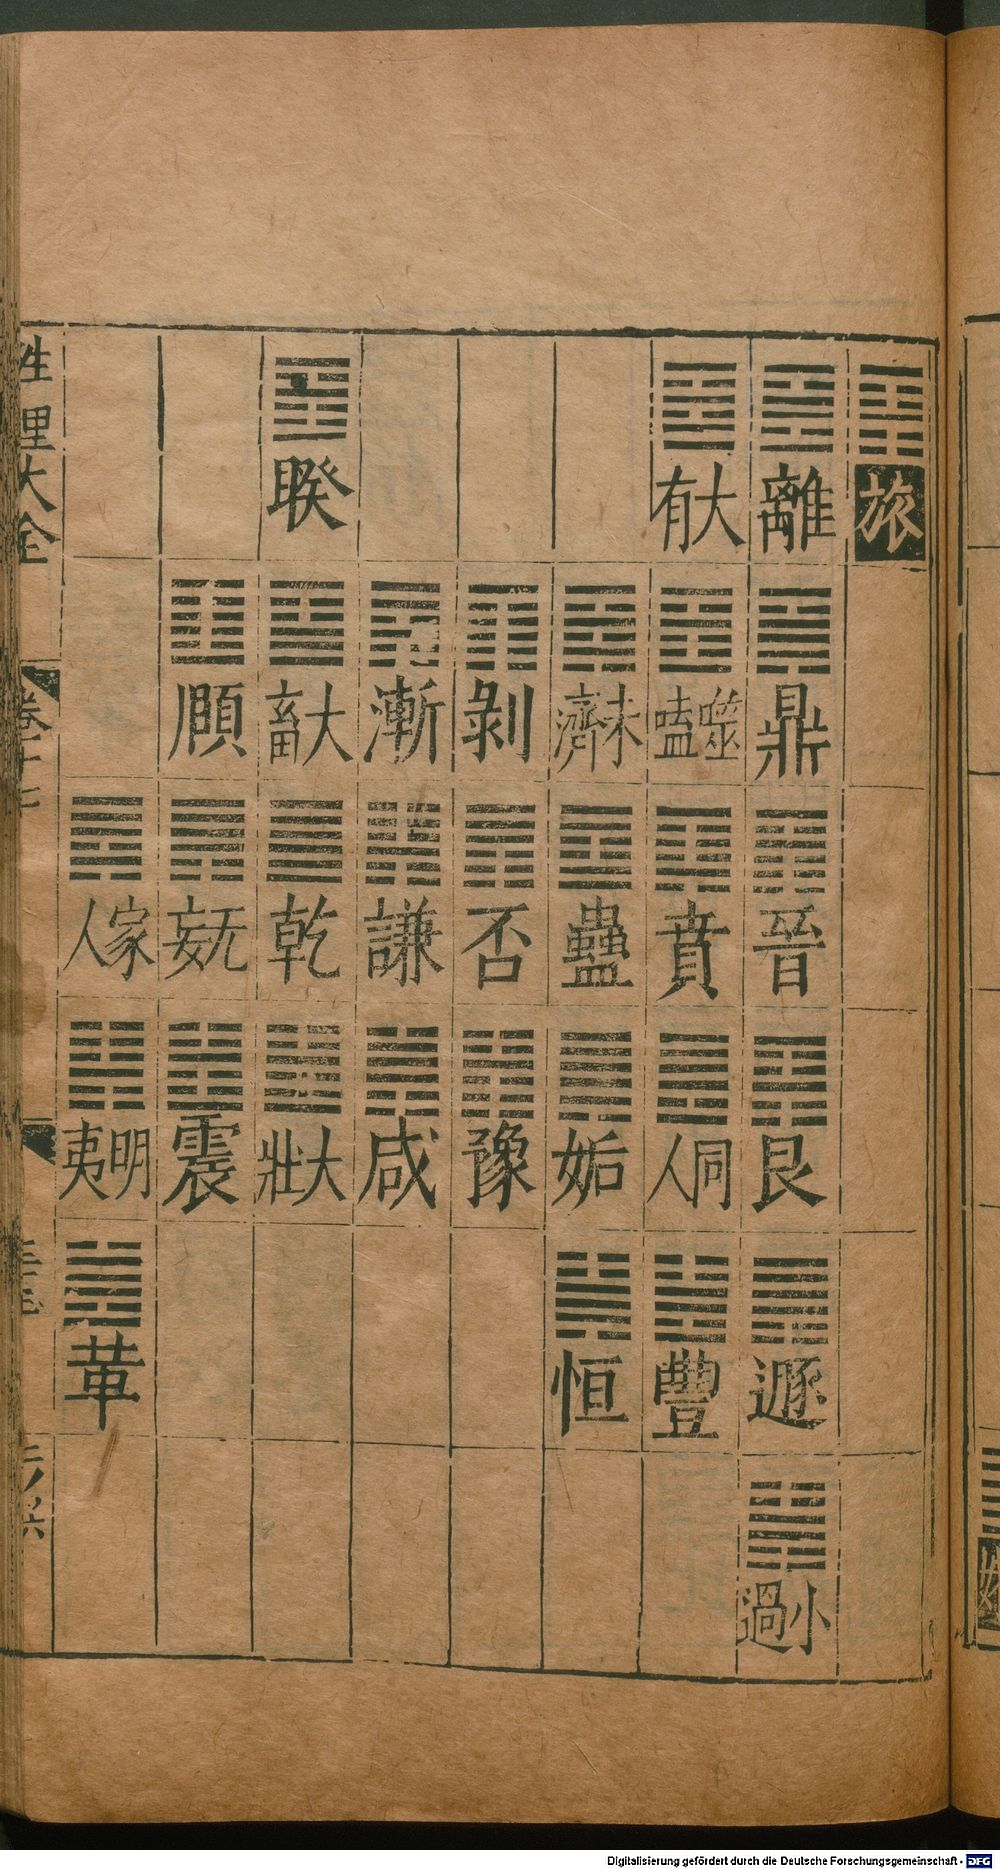 旅
離 鼎 晉 艮 遯 小過
大有 噬嗑 賁 同人 豐
未濟 蠱 姤 恒
剝 否 豫
漸 謙 咸
睽 大畜 乾 大壯
頤 无妄 震
家人 明夷 革
性理大全 卷十七
Digitalisierung gefördert durch die Deutsche Forschungsgemeinschaft - DFG